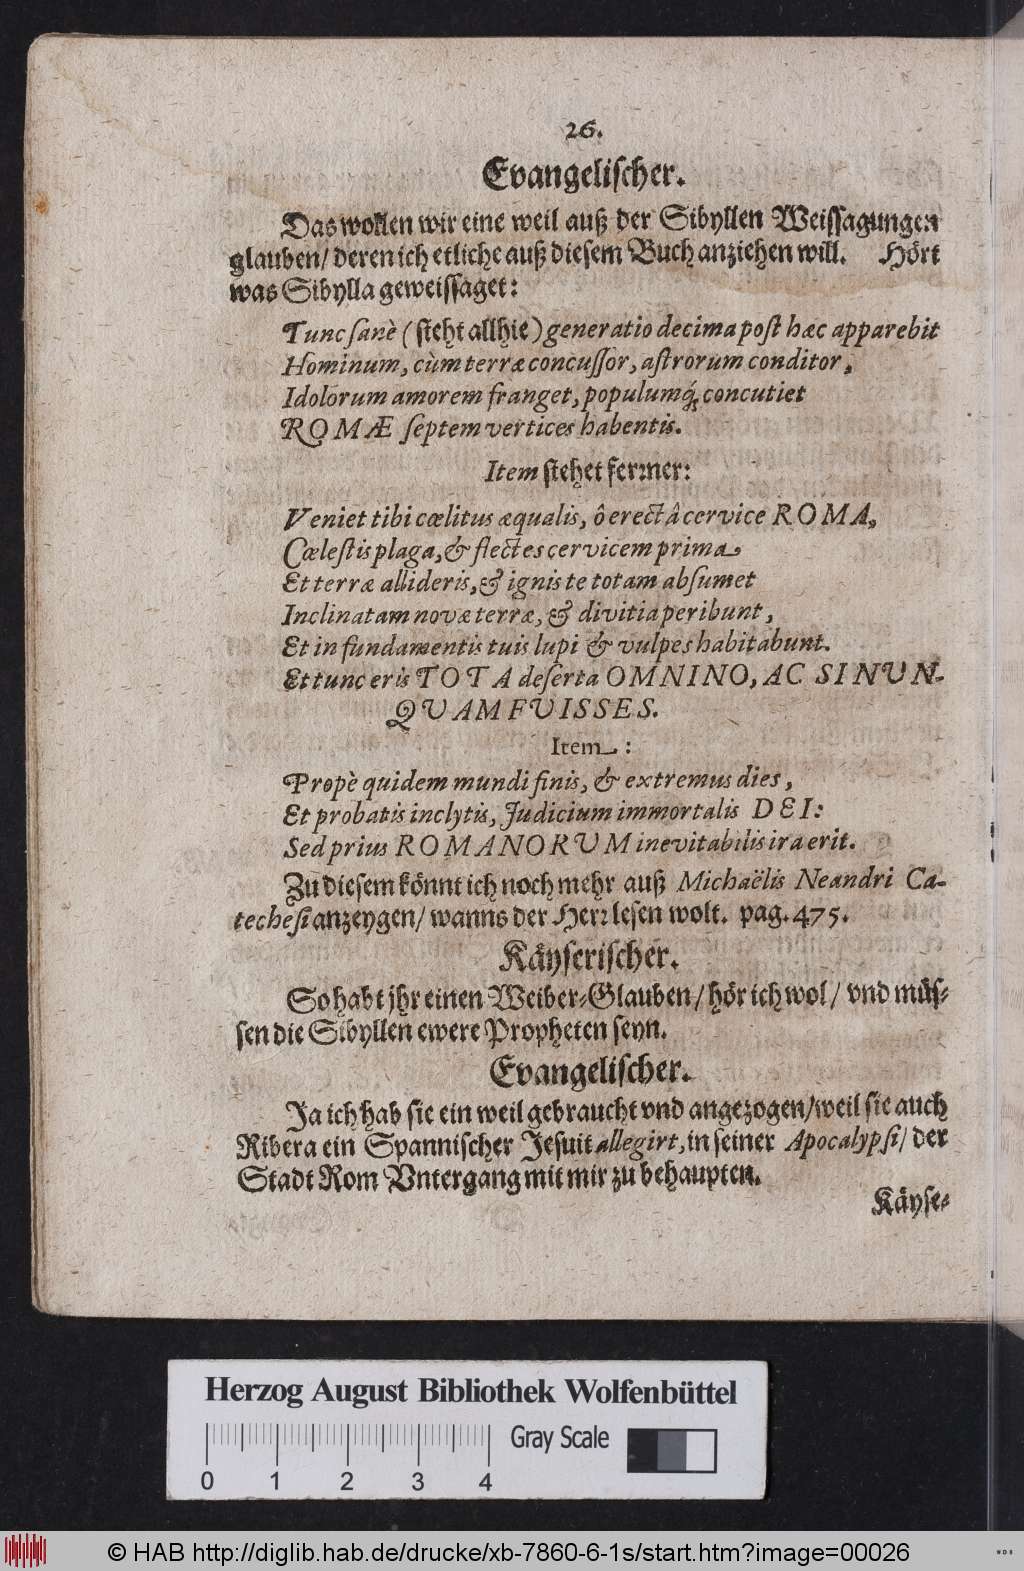 26.
Evangelischer.
Das wollen wir eine weil auß der Sibyllen Weissagungen
glauben/ deren ich etliche auß diesem Buch anziehen will. Hört
was Sibylla geweissaget:
Tunc sanè (steht allhie) generatio decima post hæc apparebit
Hominum, cùm terræ concussor, astrorum conditor,
Idolorum amorem franget, populumq́; concutiet
ROMÆ septem vertices habentis.
Item stehet ferner:
Veniet tibi cœlitus æqualis, ô erectâ cervice ROMA,
Cœlestis plaga, & flectes cervicem prima
Et terræ allideris, & ignis te totam absumet
Inclinatam novæ terræ, & divitia peribunt,
Et in fundamentis tuis lupi & vulpes habitabunt.
Et tunc eris TOTA deserta OMNINO, AC SI NUN-
QUAM FUISSES.
Item:
Propè quidem mundi finis, & extremus dies,
Et probatis inclytis, Judicium immortalis DEI:
Sed prius ROMANORUM inevitabilis ira erit.
Zu diesem könnt ich noch mehr auß Michaëlis Neandri Ca-
techesi anzeygen/ wanns der Herr lesen wolt. pag. 475.
Käyserischer.
So habt jhr einen Weiber-Glauben/ hör ich wol/ vnd müs-
sen die Sibyllen ewere Propheten seyn.
Evangelischer.
Ja ich hab sie ein weil gebraucht vnd angezogen/ weil sie auch
Ribera ein Spannischer Jesuit allegirt, in seiner Apocalypsi/ der
Stadt Rom Vntergang mit mir zu behaupten.
Käyse-
Herzog August Bibliothek Wolfenbüttel
0 1 2 3 4 Gray Scale
© HAB http://diglib.hab.de/drucke/xb-7860-6-1s/start.htm?image=00026